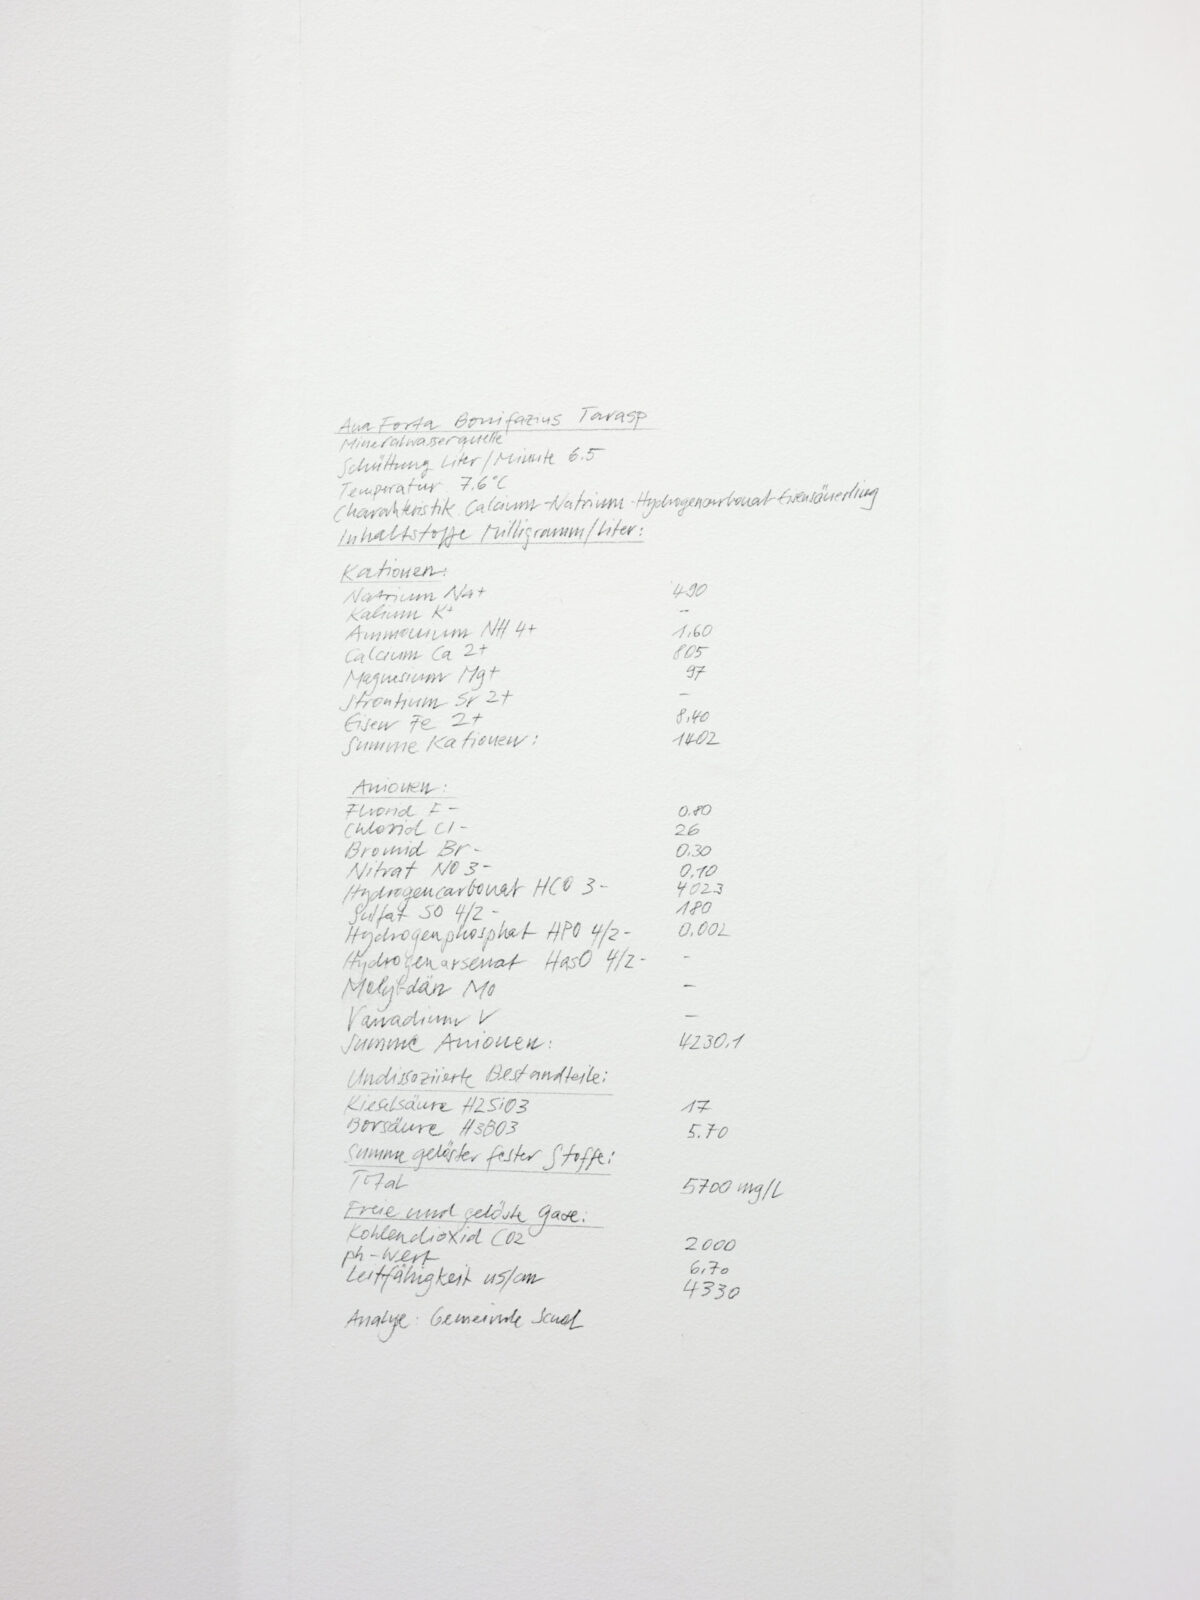 Aua Forta Bonifazius Tarasp
Mineralwasserquelle
Schüttung Liter/Minute 6.5
Temperatur 7.6°C
Charakteristik Calcium-Natrium-Hydrogencarbonat-Eisensäuerling
Inhaltstoffe Milligramm/Liter:
Kationen:
Natrium Na+ 490
Kalium K+ -
Ammonium NH 4+ 1,60
Calcium Ca 2+ 805
Magnesium Mg+ 97
Strontium Sr 2+ -
Eisen Fe 2+ 8,40
Summe Kationen: 1402
Anionen:
Fluorid F- 0.80
Chlorid Cl- 26
Bromid Br- 0.30
Nitrat NO 3- 0.10
Hydrogencarbonat HCO 3- 4023
Sulfat SO 4/2- 180
Hydrogenphosphat HPO 4/2- 0.002
Hydrogenarsenat HasO 4/2- -
Molybdän Mo -
Vanadium V -
Summe Anionen: 4230.1
Undissoziierte Bestandteile:
Kieselsäure H2SiO3 17
Borsäure H3BO3 5.70
Summe gelöster fester Stoffe:
Total 5700 mg/L
Freie und gelöste Gase:
Kohlendioxid CO2 2000
ph-Wert 6.70
Leitfähigkeit us/cm 4330
Analyse: Gemeinde Scuol